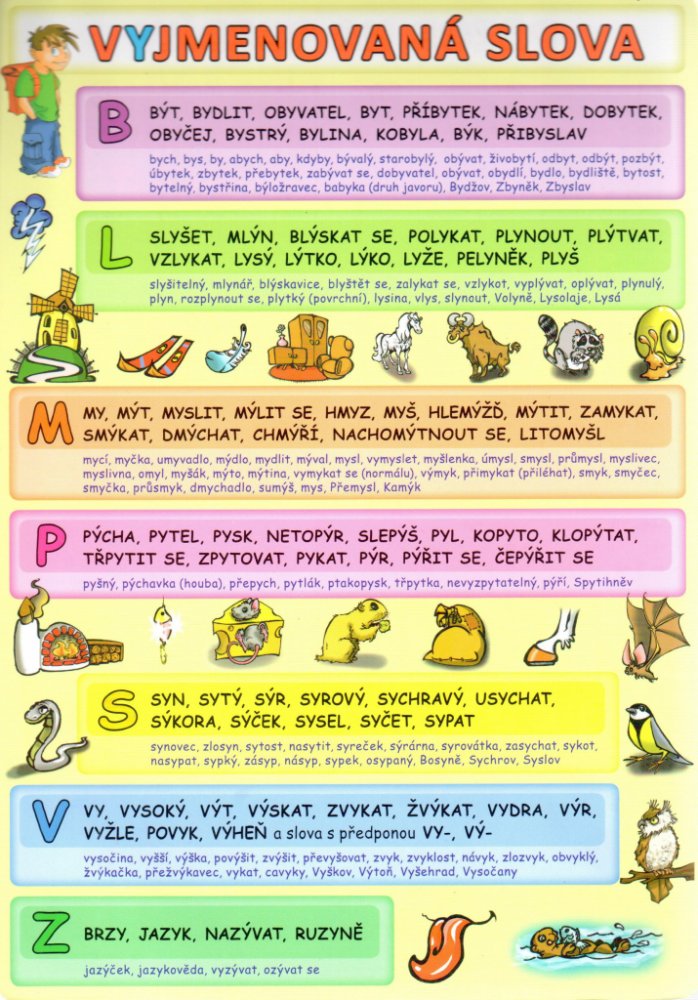 VYJMENOVANÁ SLOVA
B
BÝT, BYDLIT, OBYVATEL, BYT, PŘÍBYTEK, NÁBYTEK, DOBYTEK,
OBYČEJ, BYSTRÝ, BYLINA, KOBYLA, BÝK, PŘIBYSLAV
bych, bys, by, abych, aby, kdyby, bývalý, starobylý, obývat, živobytí, odbyt, odbýt, pozbýt,
úbytek, zbytek, přebytek, zabývat se, dobyvatel, obývat, obydlí, bydlo, bydliště, bytost,
bytelný, bystřina, býložravec, babyka (druh javoru), Bydžov, Zbyněk, Zbyslav
L
SLYŠET, MLÝN, BLÝSKAT SE, POLYKAT, PLYNOUT, PLÝTVAT,
VZLYKAT, LYSÝ, LÝTKO, LÝKO, LYŽE, PELYNĚK, PLYŠ
slyšitelný, mlynář, blýskavice, blyštět se, zalykat se, vzlykot, vyplývat, oplývat, plynulý,
plyn, rozplynout se, plytký (povrchní), lysina, vlys, slynout, Volyně, Lysolaje, Lysá
M
MY, MÝT, MYSLIT, MÝLIT SE, HMYZ, MYŠ, HLEMÝŽĎ, MÝTIT, ZAMYKAT,
SMÝKAT, DMÝCHAT, CHMÝŘÍ, NACHOMÝTNOUT SE, LITOMYŠL
mycí, myčka, umyvadlo, mýdlo, mydlit, mýval, mysl, vymyslet, myšlenka, úmysl, smysl, průmysl, myslivec,
myslivna, omyl, myšák, mýto, mýtina, vymykat se (normálu), výmyk, přimykat (přiléhat), smyk, smyčec,
smyčka, průsmyk, dmychadlo, sumýš, mys, Přemysl, Kamýk
P
PÝCHA, PYTEL, PYSK, NETOPÝR, SLEPÝŠ, PYL, KOPYTO, KLOPÝTAT,
TŘPYTIT SE, ZPYTOVAT, PYKAT, PÝR, PÝŘIT SE, ČEPÝŘIT SE
pyšný, pýchavka (houba), přepych, pytlák, ptakopysk, třpytka, nevyzpytatelný, pýří, Spytihněv
S
SYN, SYTÝ, SÝR, SYROVÝ, SYCHRAVÝ, USYCHAT,
SÝKORA, SÝČEK, SYSEL, SYČET, SYPAT
synovec, zlosyn, sytost, nasytit, syreček, sýrárna, syrovátka, zasychat, sykot,
nasypat, sypký, zásyp, násyp, sypek, osypaný, Bosyně, Sychrov, Syslov
V
VY, VYSOKÝ, VÝT, VÝSKAT, ZVYKAT, ŽVÝKAT, VYDRA, VÝR,
VYŽLE, POVYK, VÝHEŇ a slova s předponou VY-, VÝ-
vysočina, vyšší, výška, povýšit, zvýšit, převyšovat, zvyk, zvyklost, návyk, zlozvyk, obvyklý,
žvýkačka, přežvýkavec, vykat, cavyky, Vyškov, Výtoň, Vyšehrad, Vysočany
Z
BRZY, JAZYK, NAZÝVAT, RUZYNĚ
jazýček, jazykověda, vyzývat, ozývat se